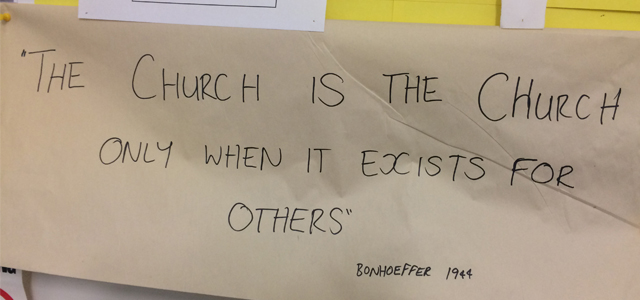 "THE CHURCH IS THE CHURCH
ONLY WHEN IT EXISTS FOR
OTHERS"
BONHOEFFER 1944